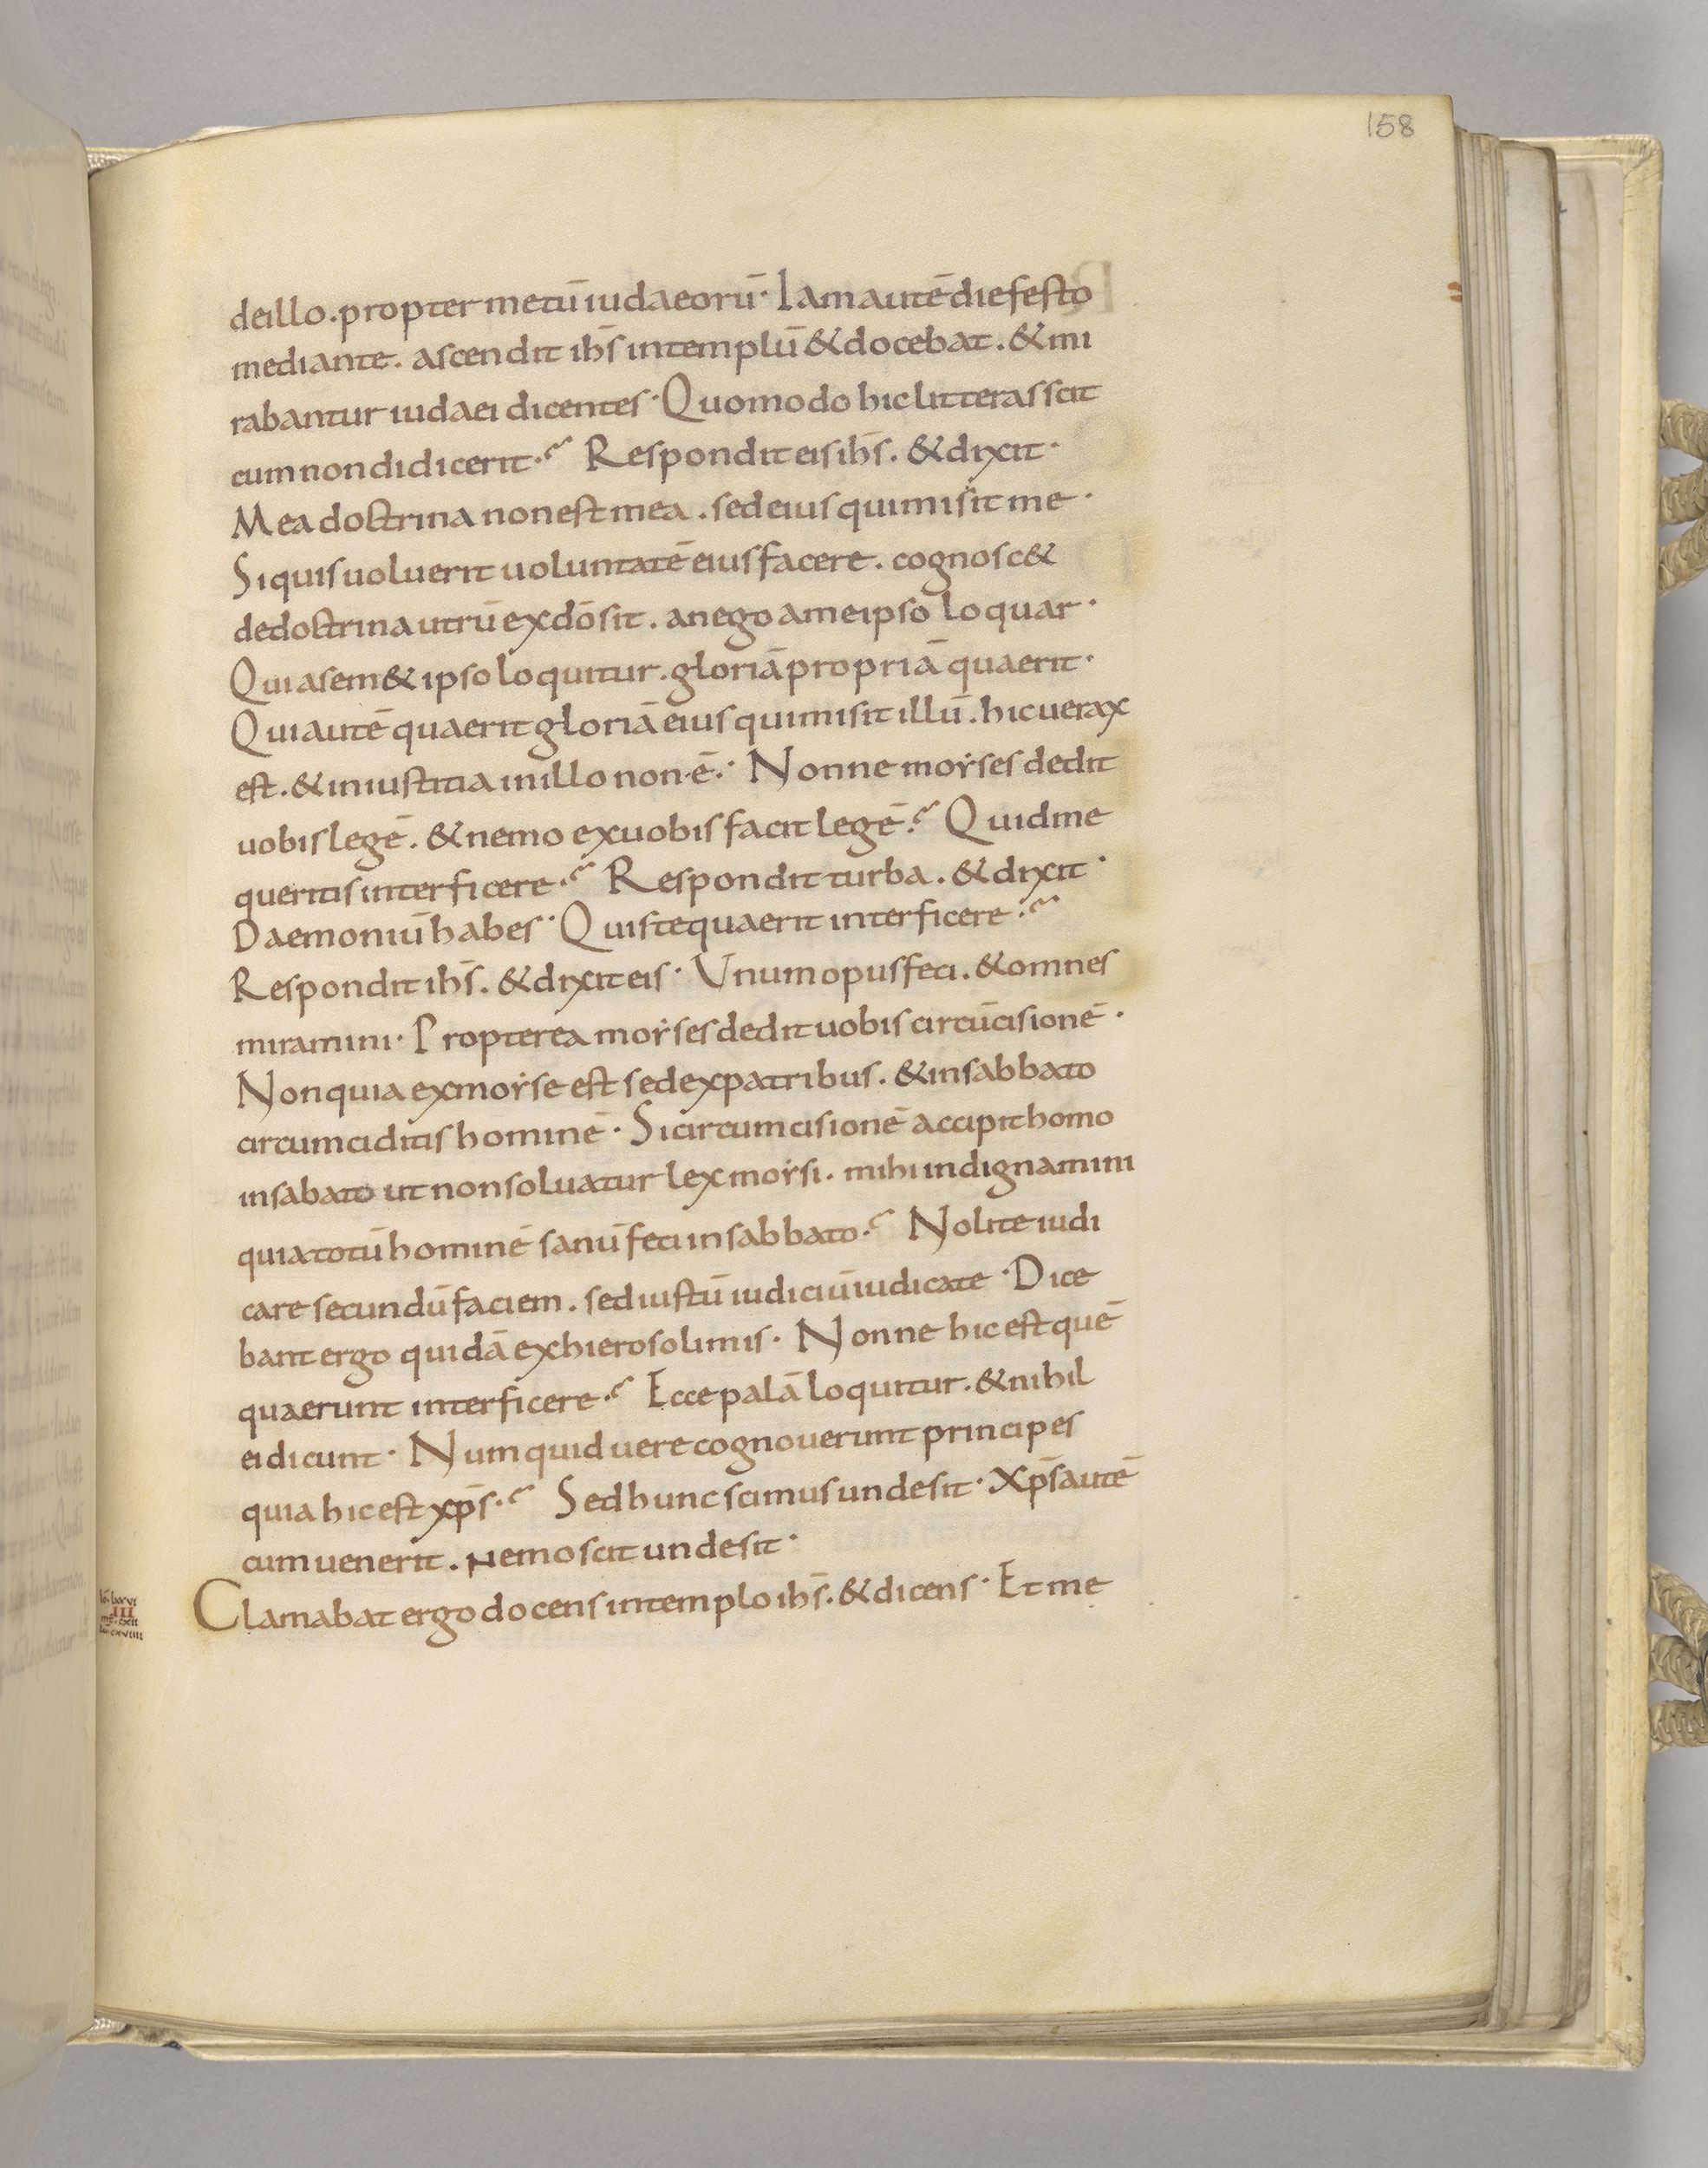 158
deillo. propter metū iudaeorū· Iam autē die festo
mediante. ascendit ihs̄ intemplū & docebat. & mi
rabantur iudaei dicentes· Quomodo hic litteras scit
cum non didicerit? Respondit eis ihs̄. & dixit·
Mea doctrina non est mea. sed eius qui misit me·
Si quis uoluerit uoluntatē eius facere. cognosc&
de doctrina utrū ex dō sit. an ego a me ipso loquar·
Qui a sem&ipso loquitur. gloriā propriā quaerit·
Qui autē quaerit gloriā eius qui misit illū. hic uerax
est. & iniustitia in illo non·ē· Nonne moẏses dedit
uobis legē. & nemo ex uobis facit legē? Quid me
queritis interficere? Respondit turba. & dixit·
Daemoniū habes· Quis te quaerit interficere?
Respondit ihs̄. & dixit eis· Vnum opus feci. & omnes
miramini· Propterea moẏses dedit uobis circūcisionē·
Non quia ex moẏse est sed ex patribus. & in sabbato
circumciditis hominē· Si circumcisionē accipit homo
in sabato ut non soluatur lex moẏsi. mihi indignamini
quia totū hominē sanū feci in sabbato? Nolite iudi
care secundū faciem. sed iustū iudiciū iudicate· Dice
bant ergo quidā ex hierosolimis· Nonne hic est quē
quaerunt interficere? Ecce palā loquitur. & nihil
ei dicunt· Numquid uere cognouerunt principes
quia hic est xp̄s? Sed hunc scimus unde sit· Xp̄s autē
cum uenerit. nemo scit unde sit·
Clamabat ergo docens in templo ihs̄. & dicens· Et me